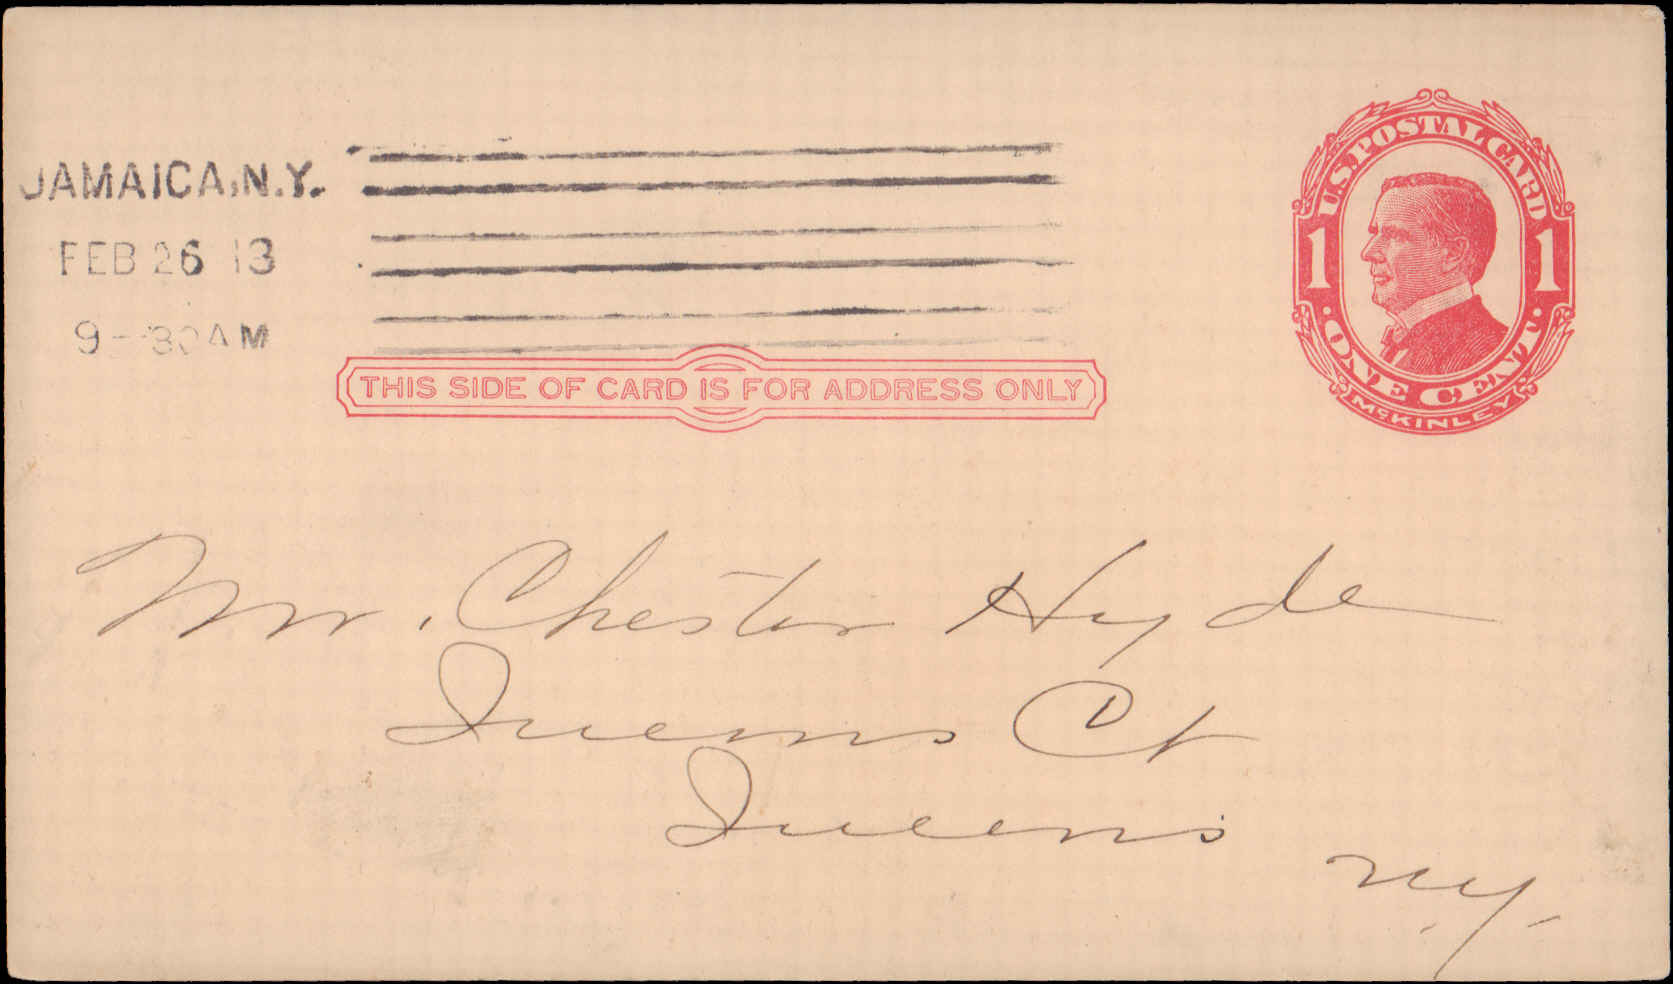 JAMAICA, N.Y.
FEB 26 13
9-30AM
U.S. POSTAL CARD
1 1
ONE CENT
McKINLEY
THIS SIDE OF CARD IS FOR ADDRESS ONLY
Mr. Chester Hyde
Queens Ct
Queens
N.Y.